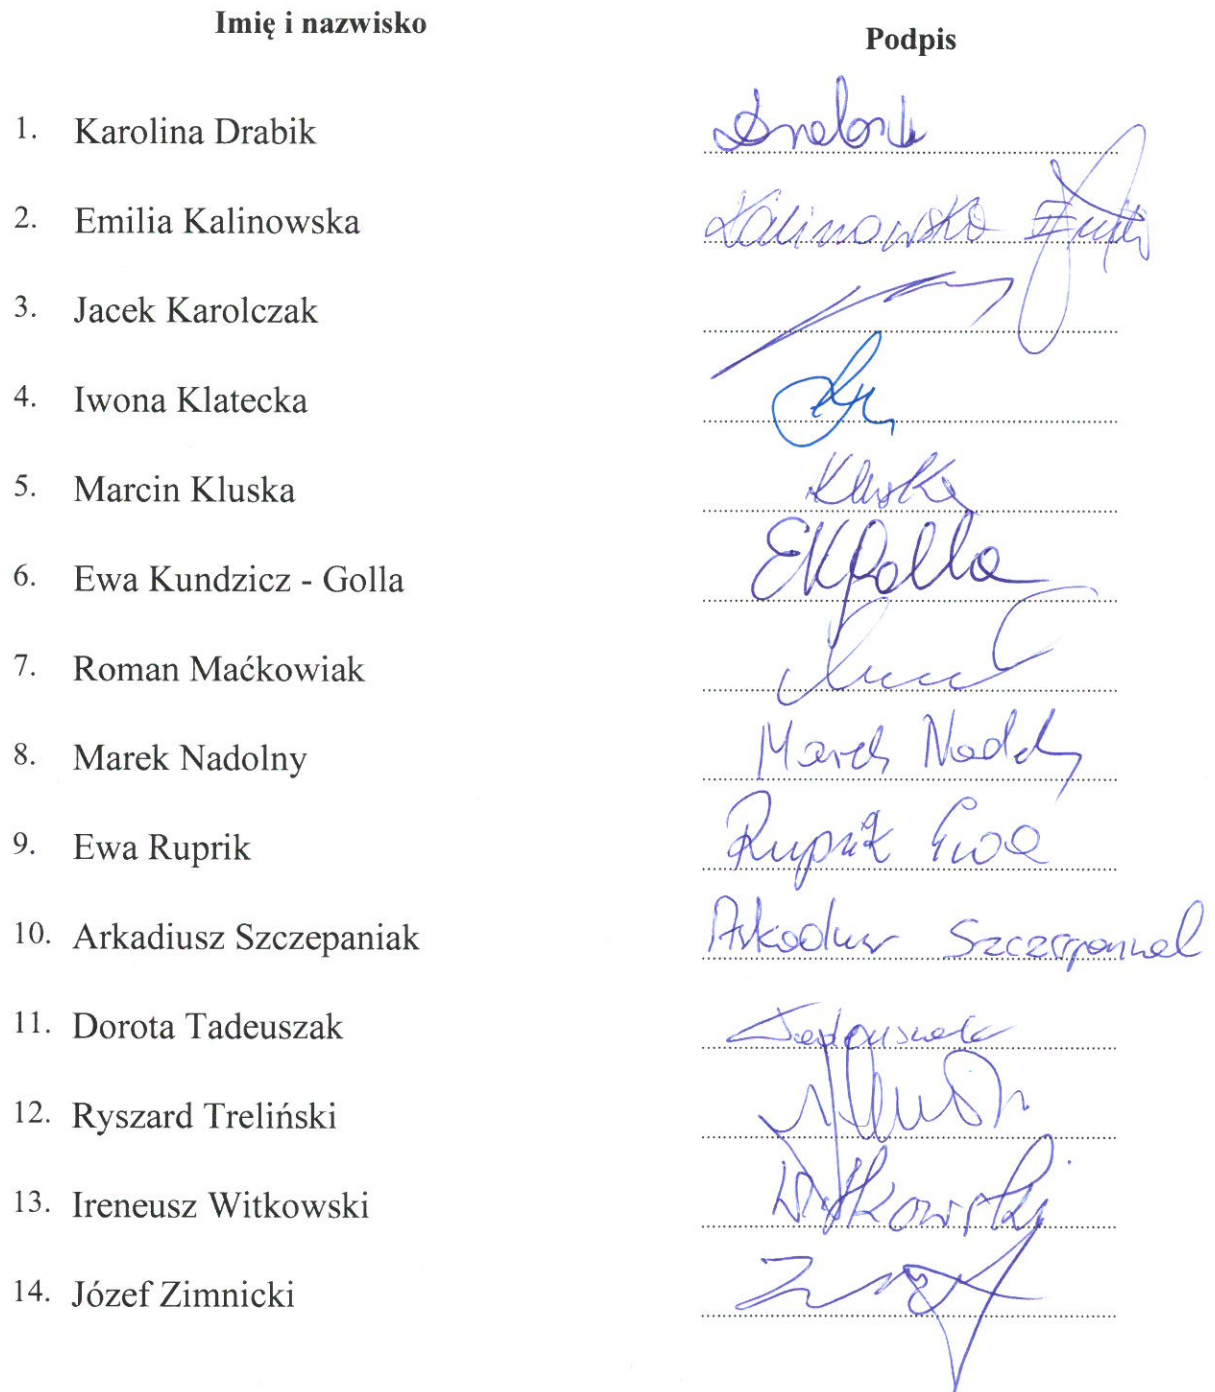 Imię i nazwisko
Podpis
1. Karolina Drabik
2. Emilia Kalinowska Kalinowska
3. Jacek Karolczak
4. Iwona Klatecka
5. Marcin Kluska Kluska
6. Ewa Kundzicz - Golla EKGolla
7. Roman Maćkowiak
8. Marek Nadolny Marek
9. Ewa Ruprik Ruprik Ewa
10. Arkadiusz Szczepaniak Arkadiusz Szczepaniak
11. Dorota Tadeuszak Tadeuszak
12. Ryszard Treliński
13. Ireneusz Witkowski Witkowski
14. Józef Zimnicki